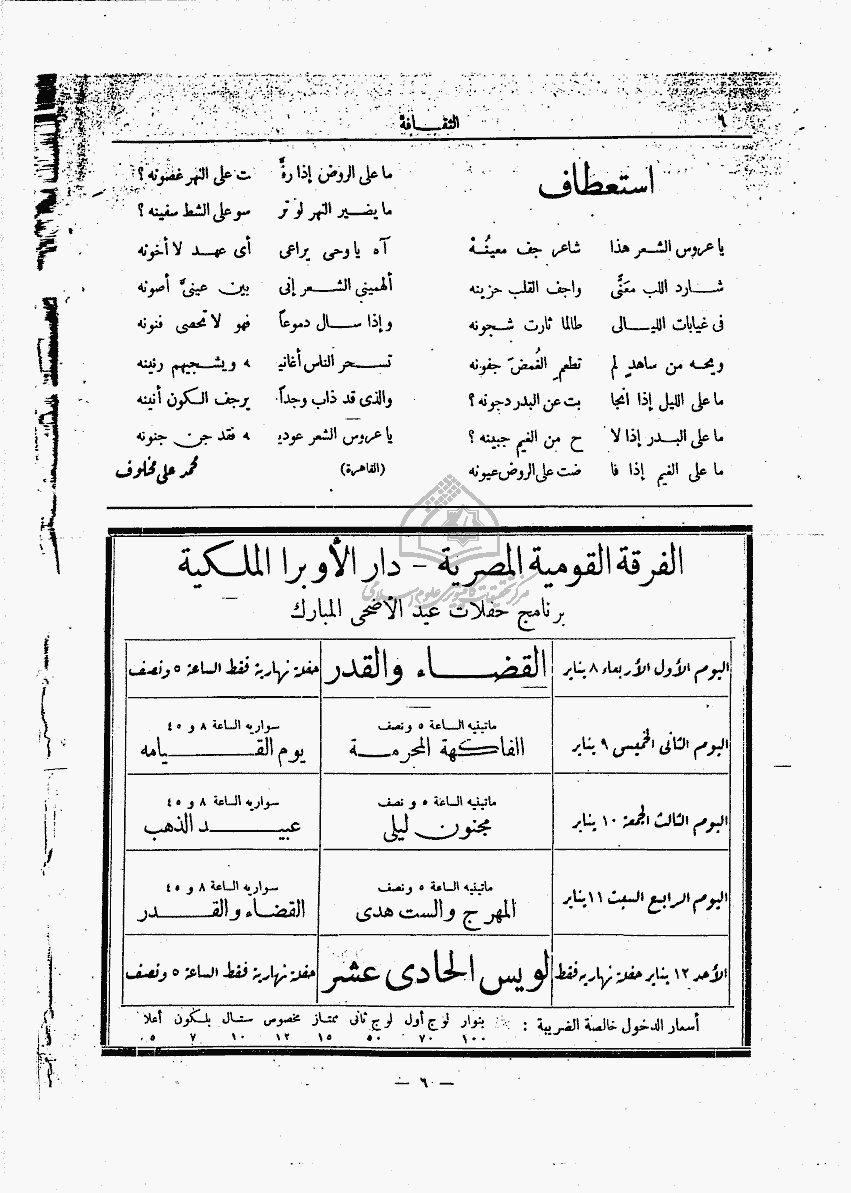 ٦
الثقافة
استعطاف
يا عروس الشعر هذا شاعر جف معينُهْ
شارد اللب معَنًّى واجف القلب حزينه
فى غيابات الليالى طالما ثارت شجونه
ويحه من ساهدٍ لم تطعم الغُمضَ جفونه
ما على الليل إذا انجا بت عن البدر دجونه؟
ما على البدر إذا لا ح من الغيم جبينه؟
ما على الغيم إذا فا ضت على الروض عيونه
ما على الروض إذا رفَّ ت على النهر غصونه؟
ما يضير النهر لو تر سو على الشط سفينه؟
آه يا وحى يراعى أى عهد لا أخونه
ألهمينى الشعر إنى بين عينىَّ أصونه
وإذا سال دموعاً فهو لا تحصى فنونه
تسحر الناس أغانيـ ـه ويشجيهم رنينه
والذى قد ذاب وجداً يرجف الكون أنينه
يا عروس الشعر عوديـ ـه فقد جن جنونه
(القاهرة) محمد على مخلوف
الفرقة القومية المصرية - دار الأوبرا الملكية
برنامج حفلات عيد الأضحى المبارك
اليوم الأول الأربعاء ٨ يناير القضاء والقدر حفلة نهارية فقط الساعة ٥ ونصف
اليوم الثانى الخميس ٩ يناير ماتينيه الساعة ٥ ونصف الفاكهة المحرمة سواريه الساعة ٨ و ٤٥ يوم القيامه
اليوم الثالث الجمعة ١٠ يناير ماتينيه الساعة ٥ ونصف مجنون ليلى سواريه الساعة ٨ و ٤٥ عبيد الذهب
اليوم الرابع السبت ١١ يناير ماتينيه الساعة ٥ ونصف المهرج والست هدى سواريه الساعة ٨ و ٤٥ القضاء والقدر
الأحد ١٢ يناير حفلة نهارية فقط لويس الحادى عشر حفلة نهارية فقط الساعة ٥ ونصف
أسعار الدخول خالصة الضريبة : بنوار لوج أول لوج ثانى ممتاز مخصوص ستال بلكون أعلا
١٠٠ ٧٠ ٥٠ ١٥ ١٢ ١٠ ٧ ٥
— ٦ —